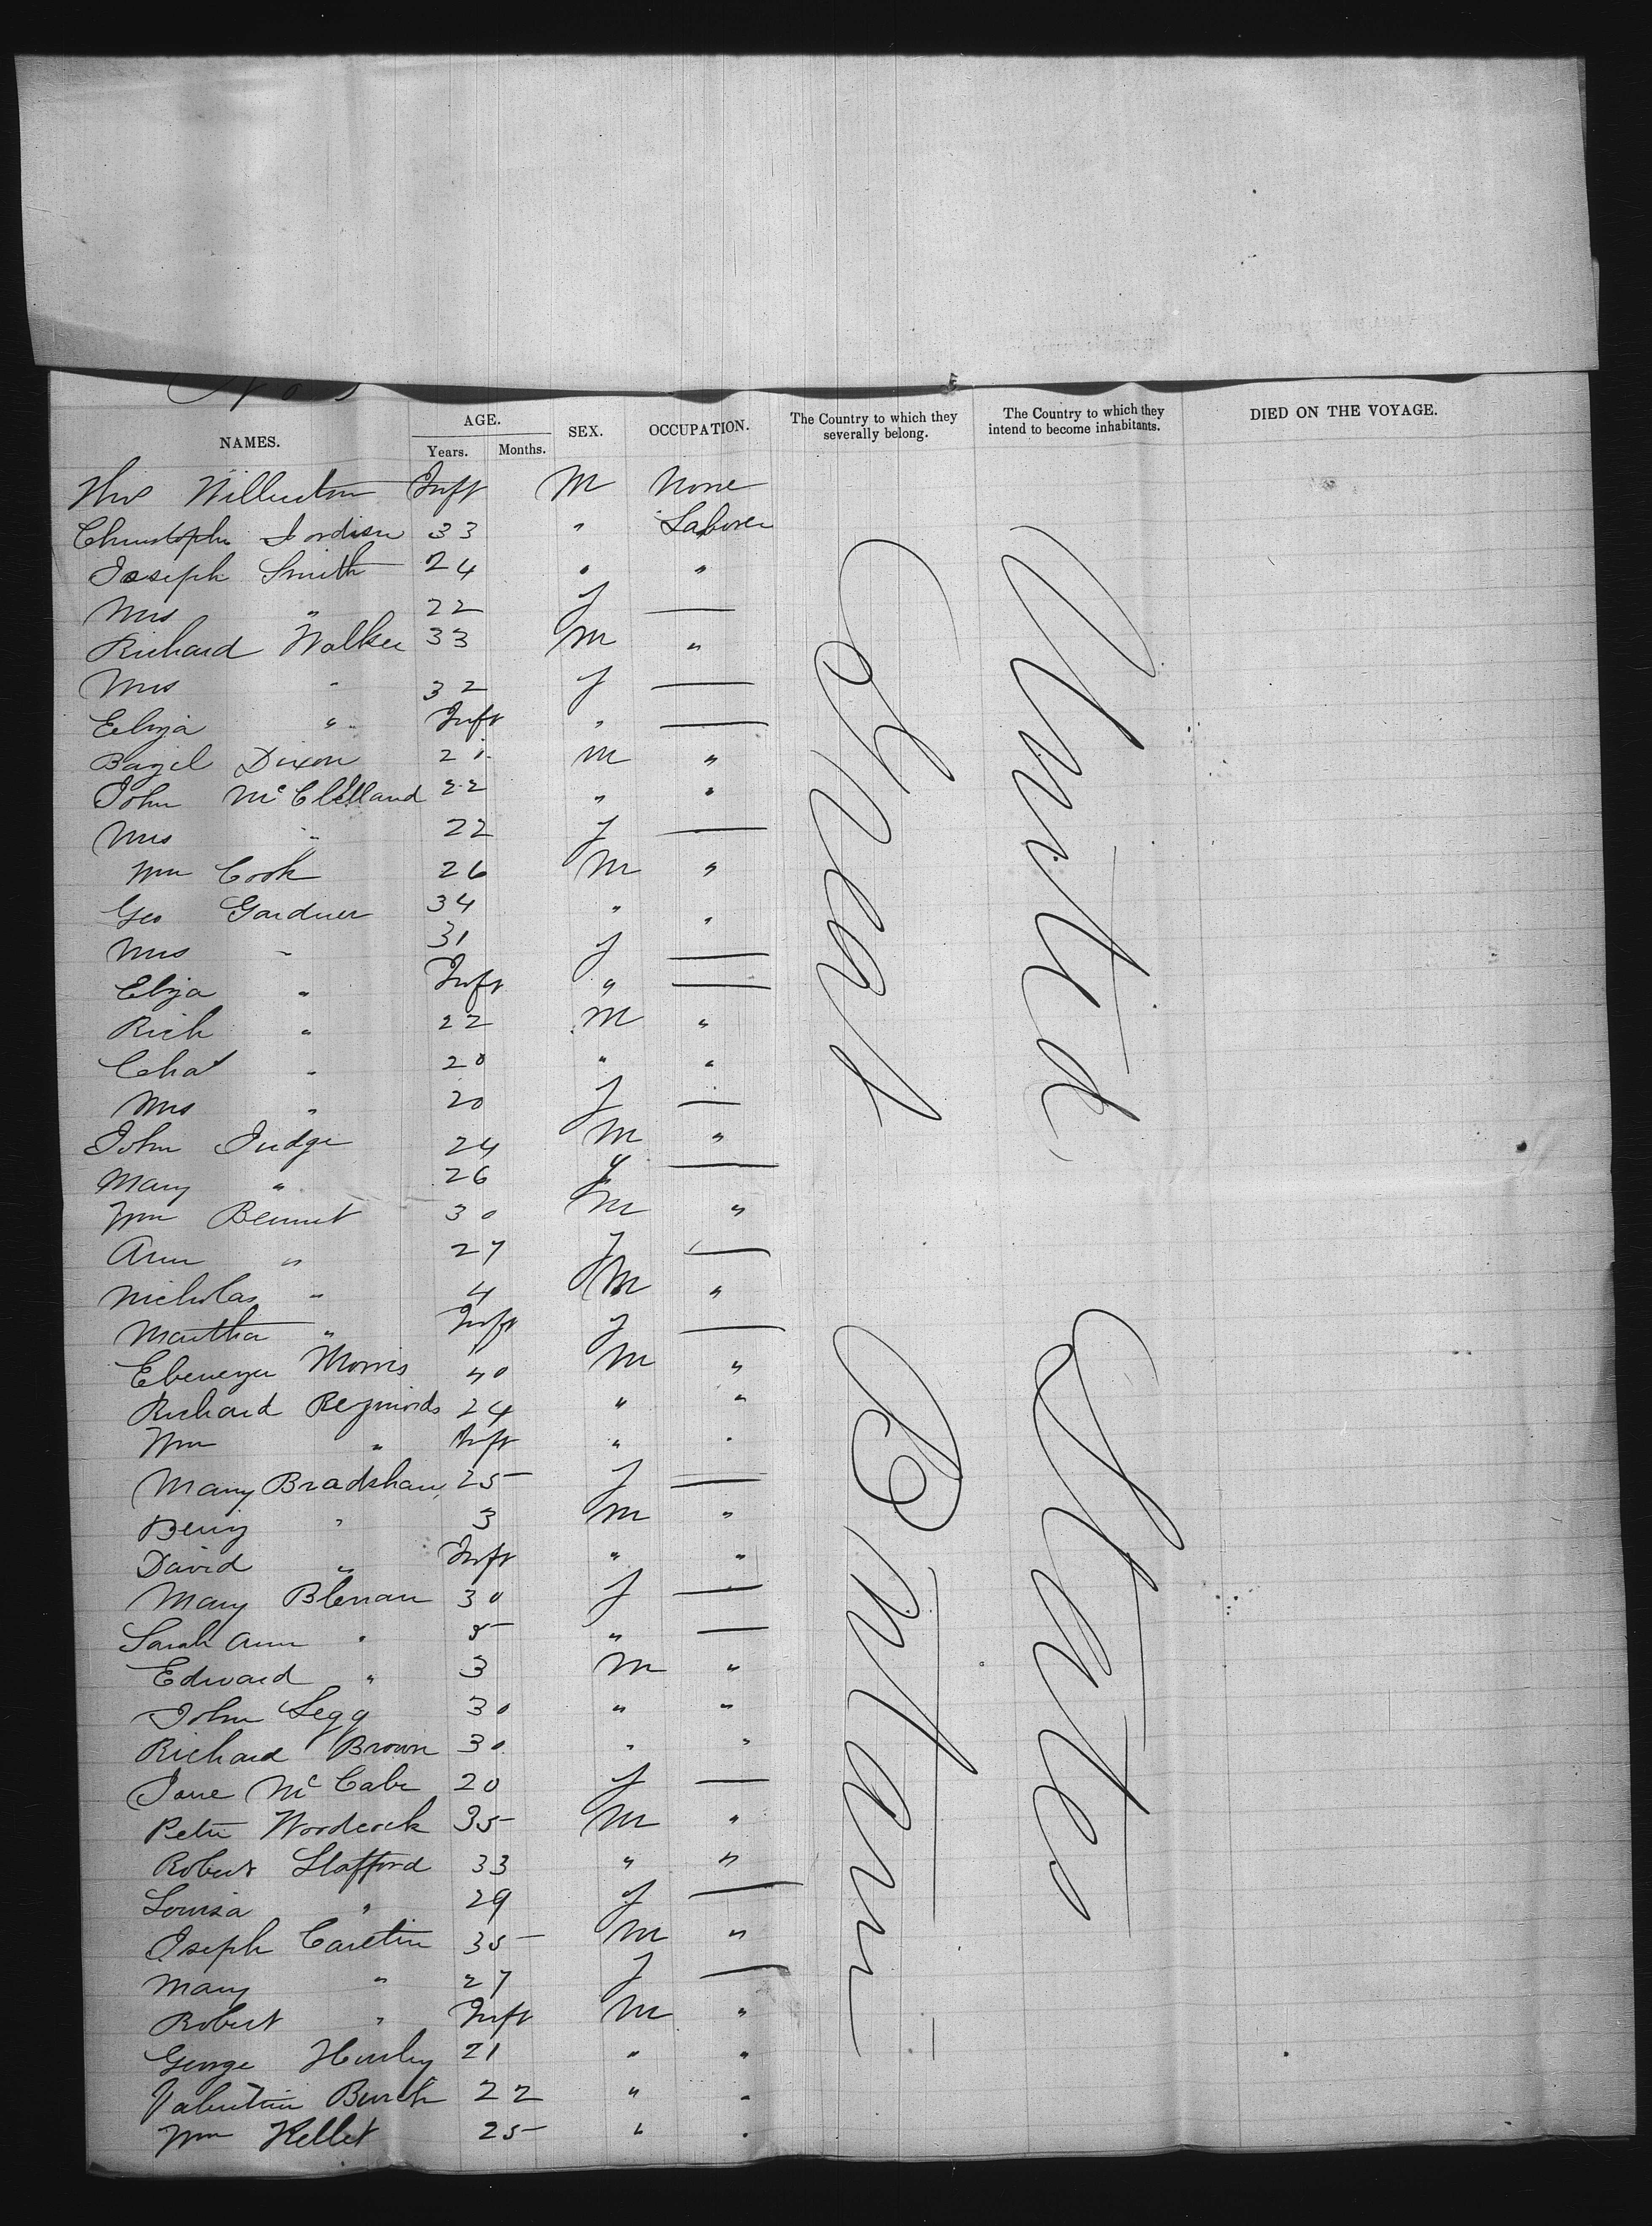 No 5
NAMES. AGE. Years. Months. SEX. OCCUPATION. The Country to which they severally belong. The Country to which they intend to become inhabitants. DIED ON THE VOYAGE.
Inft M None
33 " Laborer
Joseph Smith 24 " "
Mrs " 22 f —
Richard Walker 33 M "
Mrs " 32 f —
Eliza " Inft " —
Bazil Dixon 21 M "
John McClelland 22 " "
Mrs " 22 f —
Wm Cook 26 M "
Geo Gardner 34 " "
Mrs " 31 f —
Eliza " Inft " —
Rich " 22 M "
Chas " 20 " "
Mrs " 20 f —
John Judge 24 M "
Mary " 26 f —
Wm Bennet 30 M "
Ann " 27 f —
Nicholas " 4 M "
Martha " Inft f —
Ebenezer Morris 40 M "
Richard Reynolds 24 " "
Wm " Inft " "
Mary Bradshaw 25 f —
Benj " 3 M "
David " Inft " "
Mary 30 f —
Sarah Ann " 5 " —
Edward " 3 M "
John Legg 30 " "
Richard Brown 30 " "
Jane McCabe 20 f —
Peter Woodcock 35 M "
Robert Stafford 33 " "
Louisa " 29 f —
Joseph 35 M "
Mary " 27 f —
Robert " Inft M "
George 21 " "
Valentine 22 " "
Wm Kellet 25 " "
Great Britain
United States